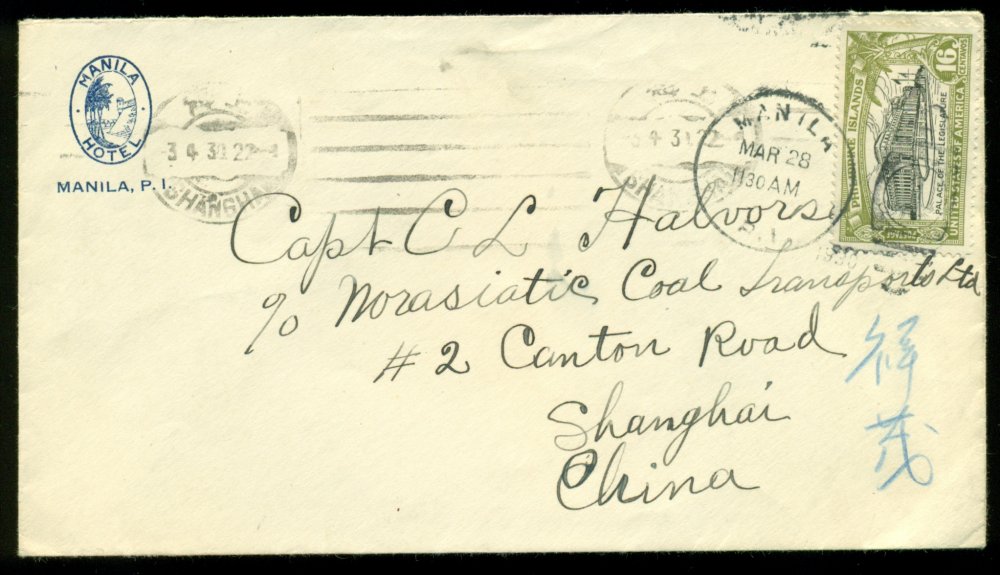 MANILA
HOTEL
MANILA, P. I.
3 4 31 22
SHANGHAI
3 4 31 22
SHANGHAI
MANILA
MAR 28
11 30 AM
P.I.
PHILIPPINE ISLANDS
16
CENTAVOS
PALACE OF THE LEGISLATURE
UNITED STATES OF AMERICA
Capt C L Halvorsen
c/o Norasiatic Coal Transports Ltd
#2 Canton Road
Shanghai
China
祥
茂